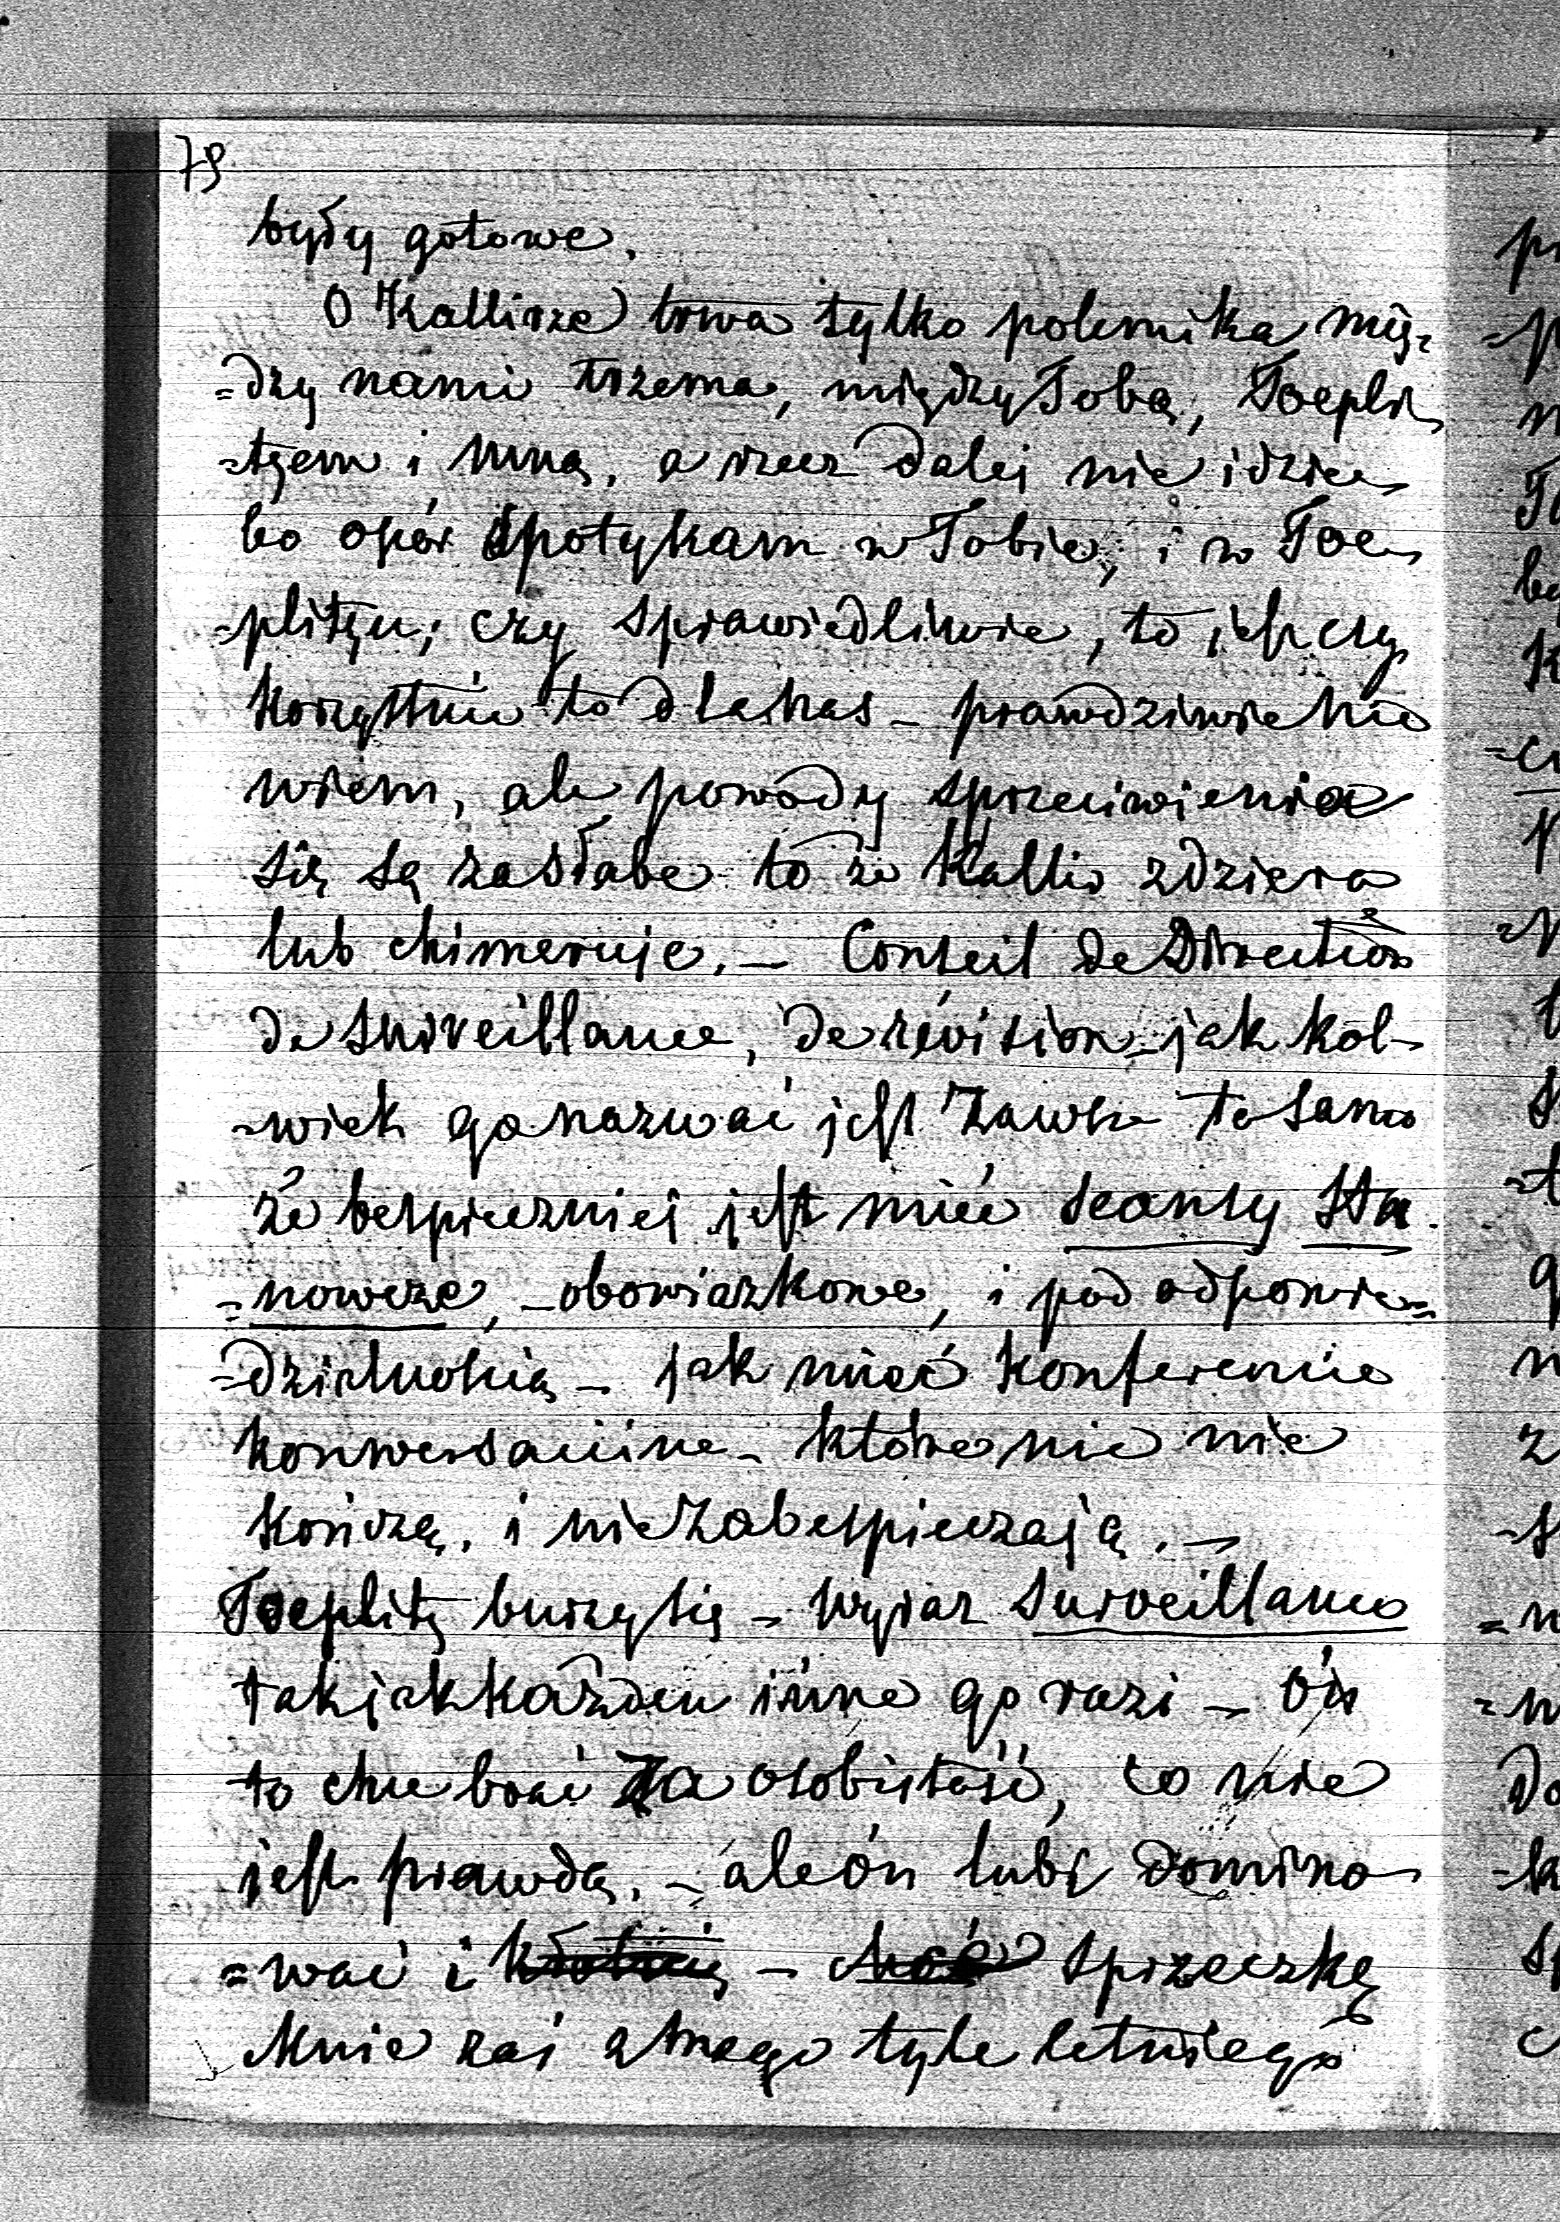 79
były gotowe.
O Kallirze trwa tylko polemika mię-
=dzy nami trzema, między Tobą, Toepli
=tzem i mną, a rzecz dalej nie idzie
bo opór spotykam w Tobie, i w Toe
=plitzu; czy sprawiedliwie, to jest czy
korzystnie to dla nas – prawdziwie nie
wiem, ale powody sprzeciwienia
się są za słabe to że Kallir zdziera
lub chimeruje. – Conseil de Direction
de surveillance, de révision – jak kol-
=wiek go nazwać jest zawsze to samo
że bespieczniej jest mieć seansy sta
=nowcze, – obowiązkowe, i pod odpowie=
=dzialnością – jak mieć konferencie
konwersaciine – które nic nie
kończą, i nie zabespieczają. –
Toeplitz burzy się – wyraz surveillance
tak jak każden inne go razi – ón
to chce brać za osobistość, co nie
jest prawdą, – ale ón lubi domino
=wać i – sprzeczkę
Mnie zaś znego tyle letniego